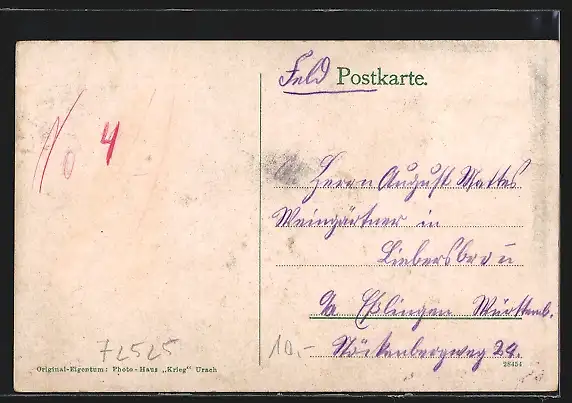 Feld Postkarte.
4
Herrn August Mattes
Weingärtner in
Liebersbronn
Eßlingen Württemb.
Stöckenbergweg 29.
72525
10.-
Original-Eigentum: Photo-Haus „Krieg“ Urach
28454